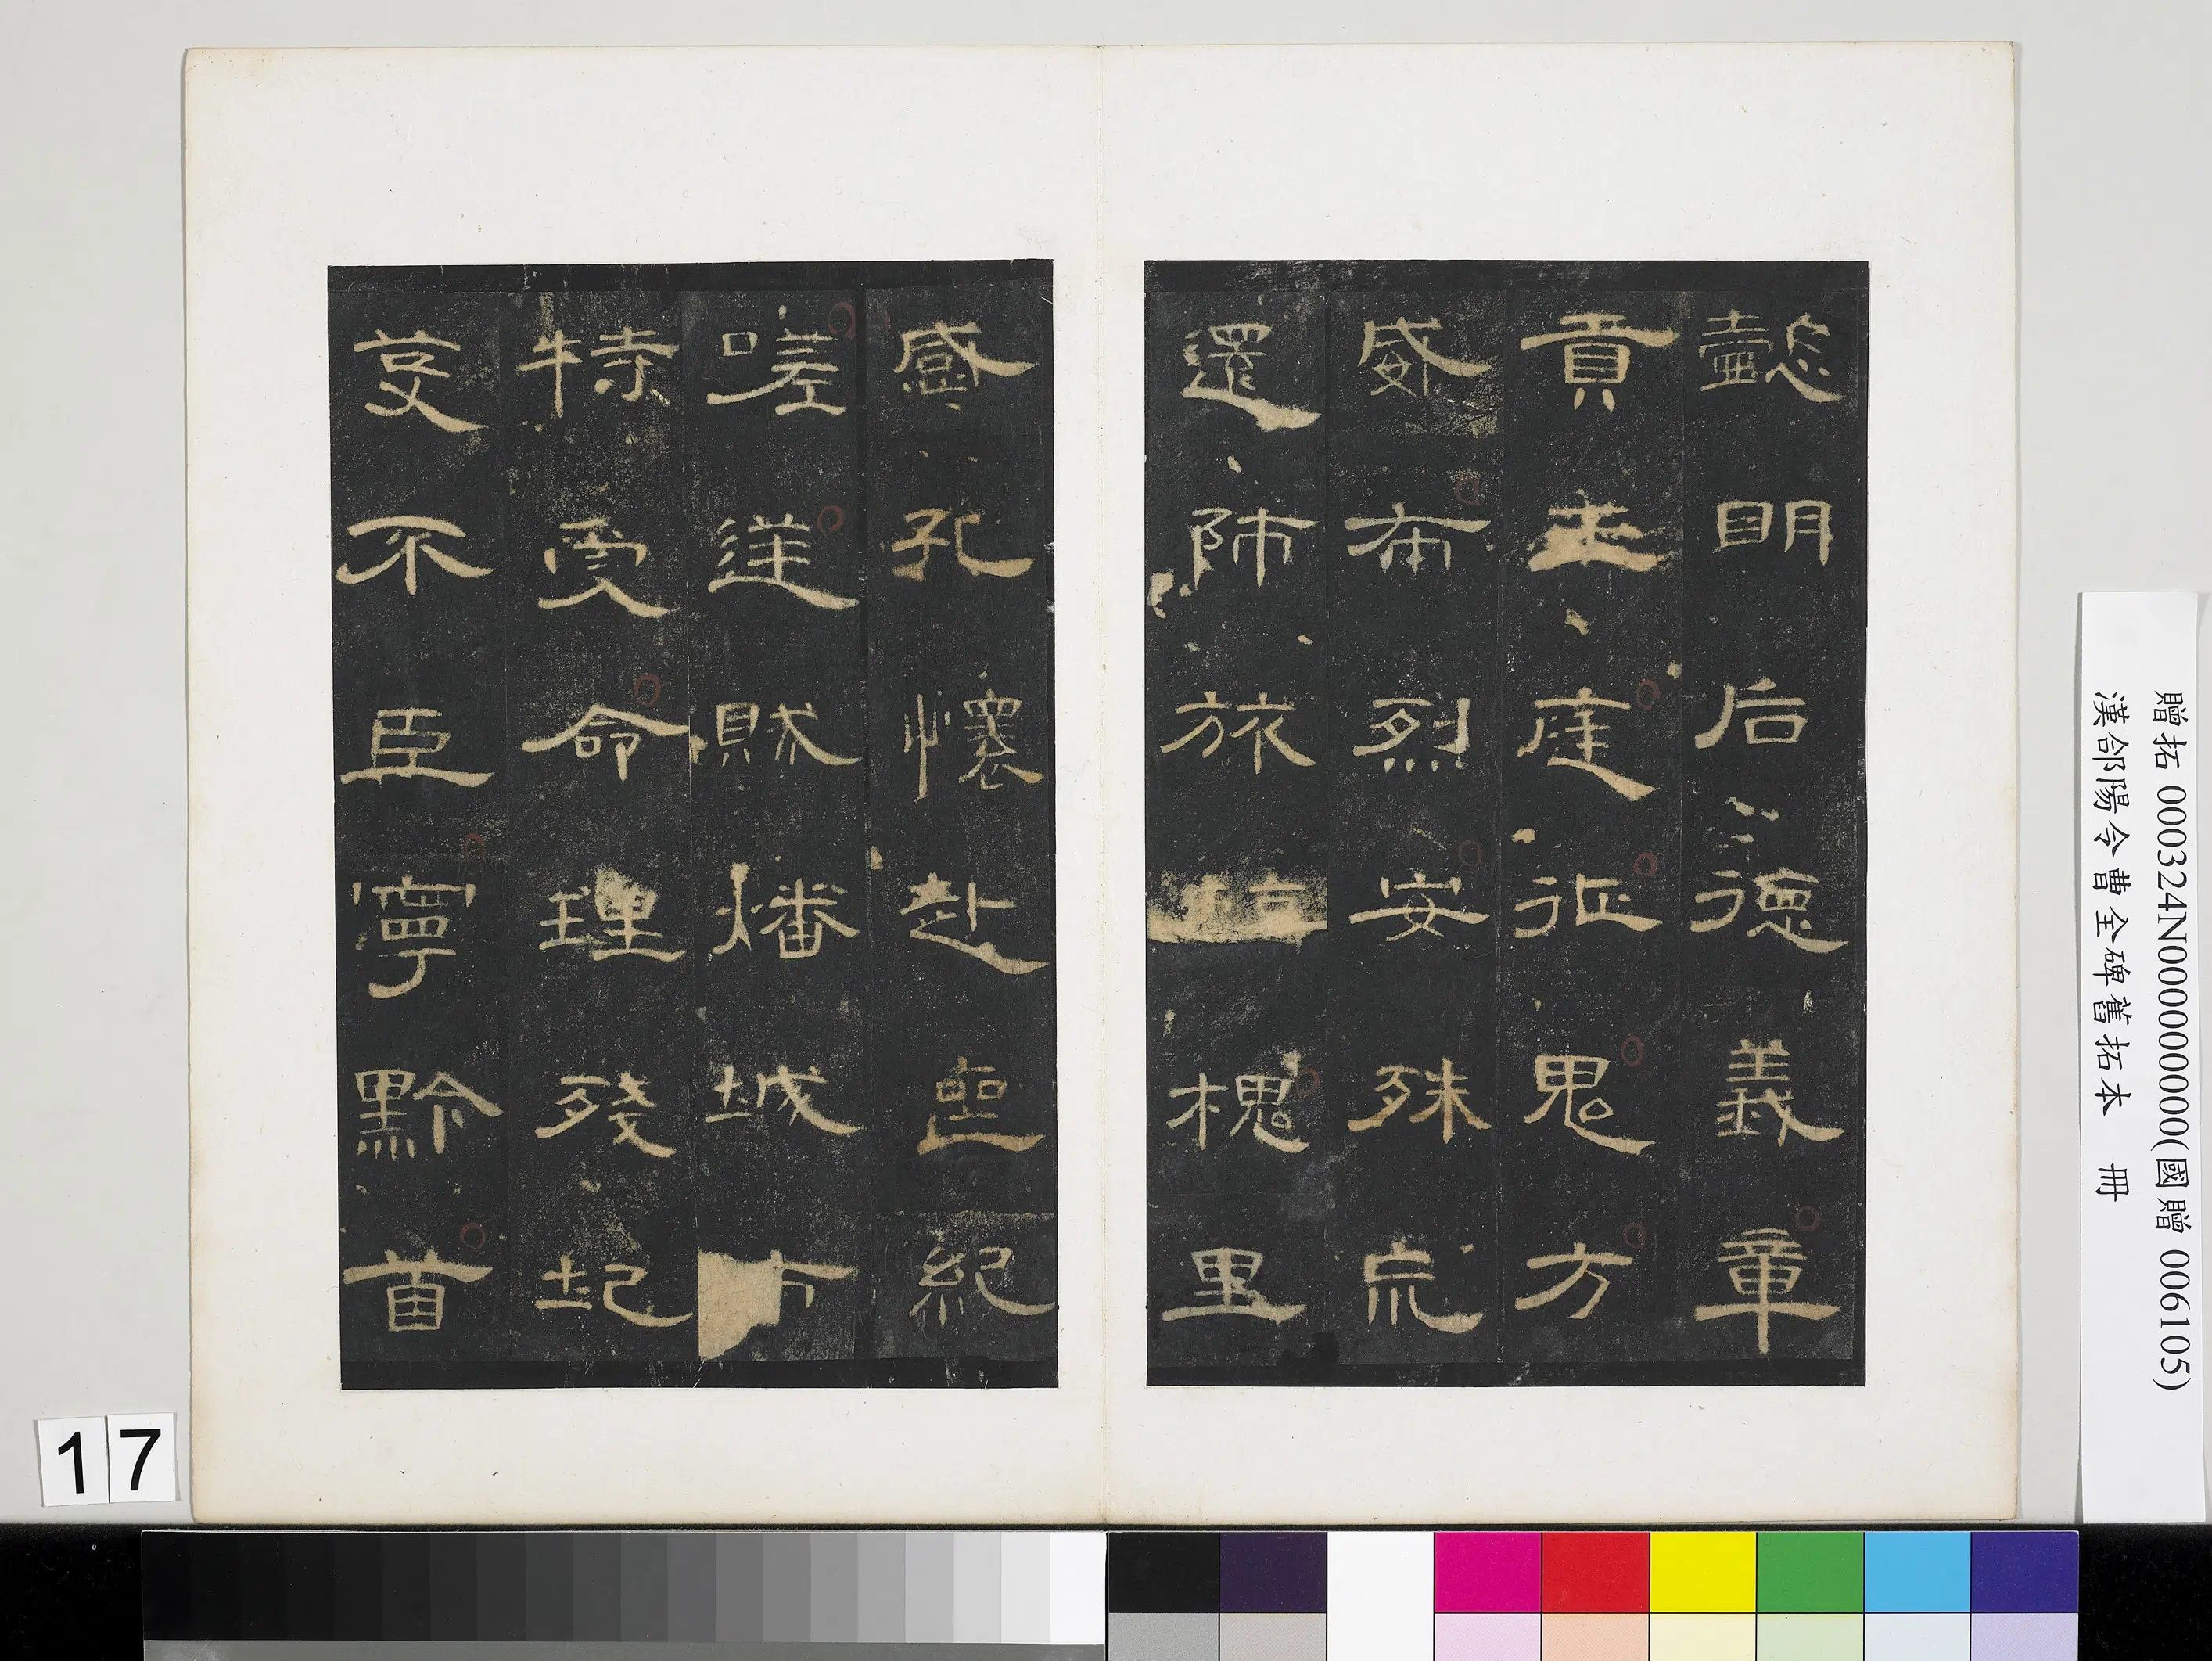 懿明后德義章
貢王庭征鬼方
威布烈安殊巟
還師旅槐里
感孔懷赴喪紀
嗟逆賊燔城市
特受命理殘圮
芟不臣寧黔首
贈拓 000324N000000000(國贈 006105)
漢郃陽令曹全碑舊拓本 冊
17